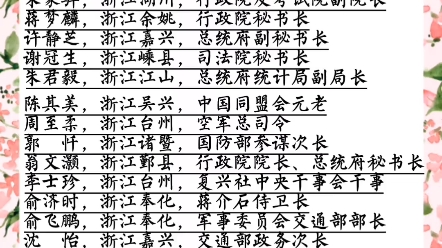 朱家骅，浙江湖州，行政院及考试院副院长
蒋梦麟，浙江余姚，行政院秘书长
许静芝，浙江嘉兴，总统府副秘书长
谢冠生，浙江嵊县，司法院秘书长
朱君毅，浙江江山，总统府统计局副局长
陈其美，浙江吴兴，中国同盟会元老
周至柔，浙江台州，空军总司令
郭　忏，浙江诸暨，国防部参谋次长
翁文灏，浙江鄞县，行政院院长、总统府秘书长
李士珍，浙江台州，复兴社中央干事会干事
俞济时，浙江奉化，蒋介石侍卫长
俞飞鹏，浙江奉化，军事委员会交通部部长
沈　怡，浙江嘉兴，交通部政务次长